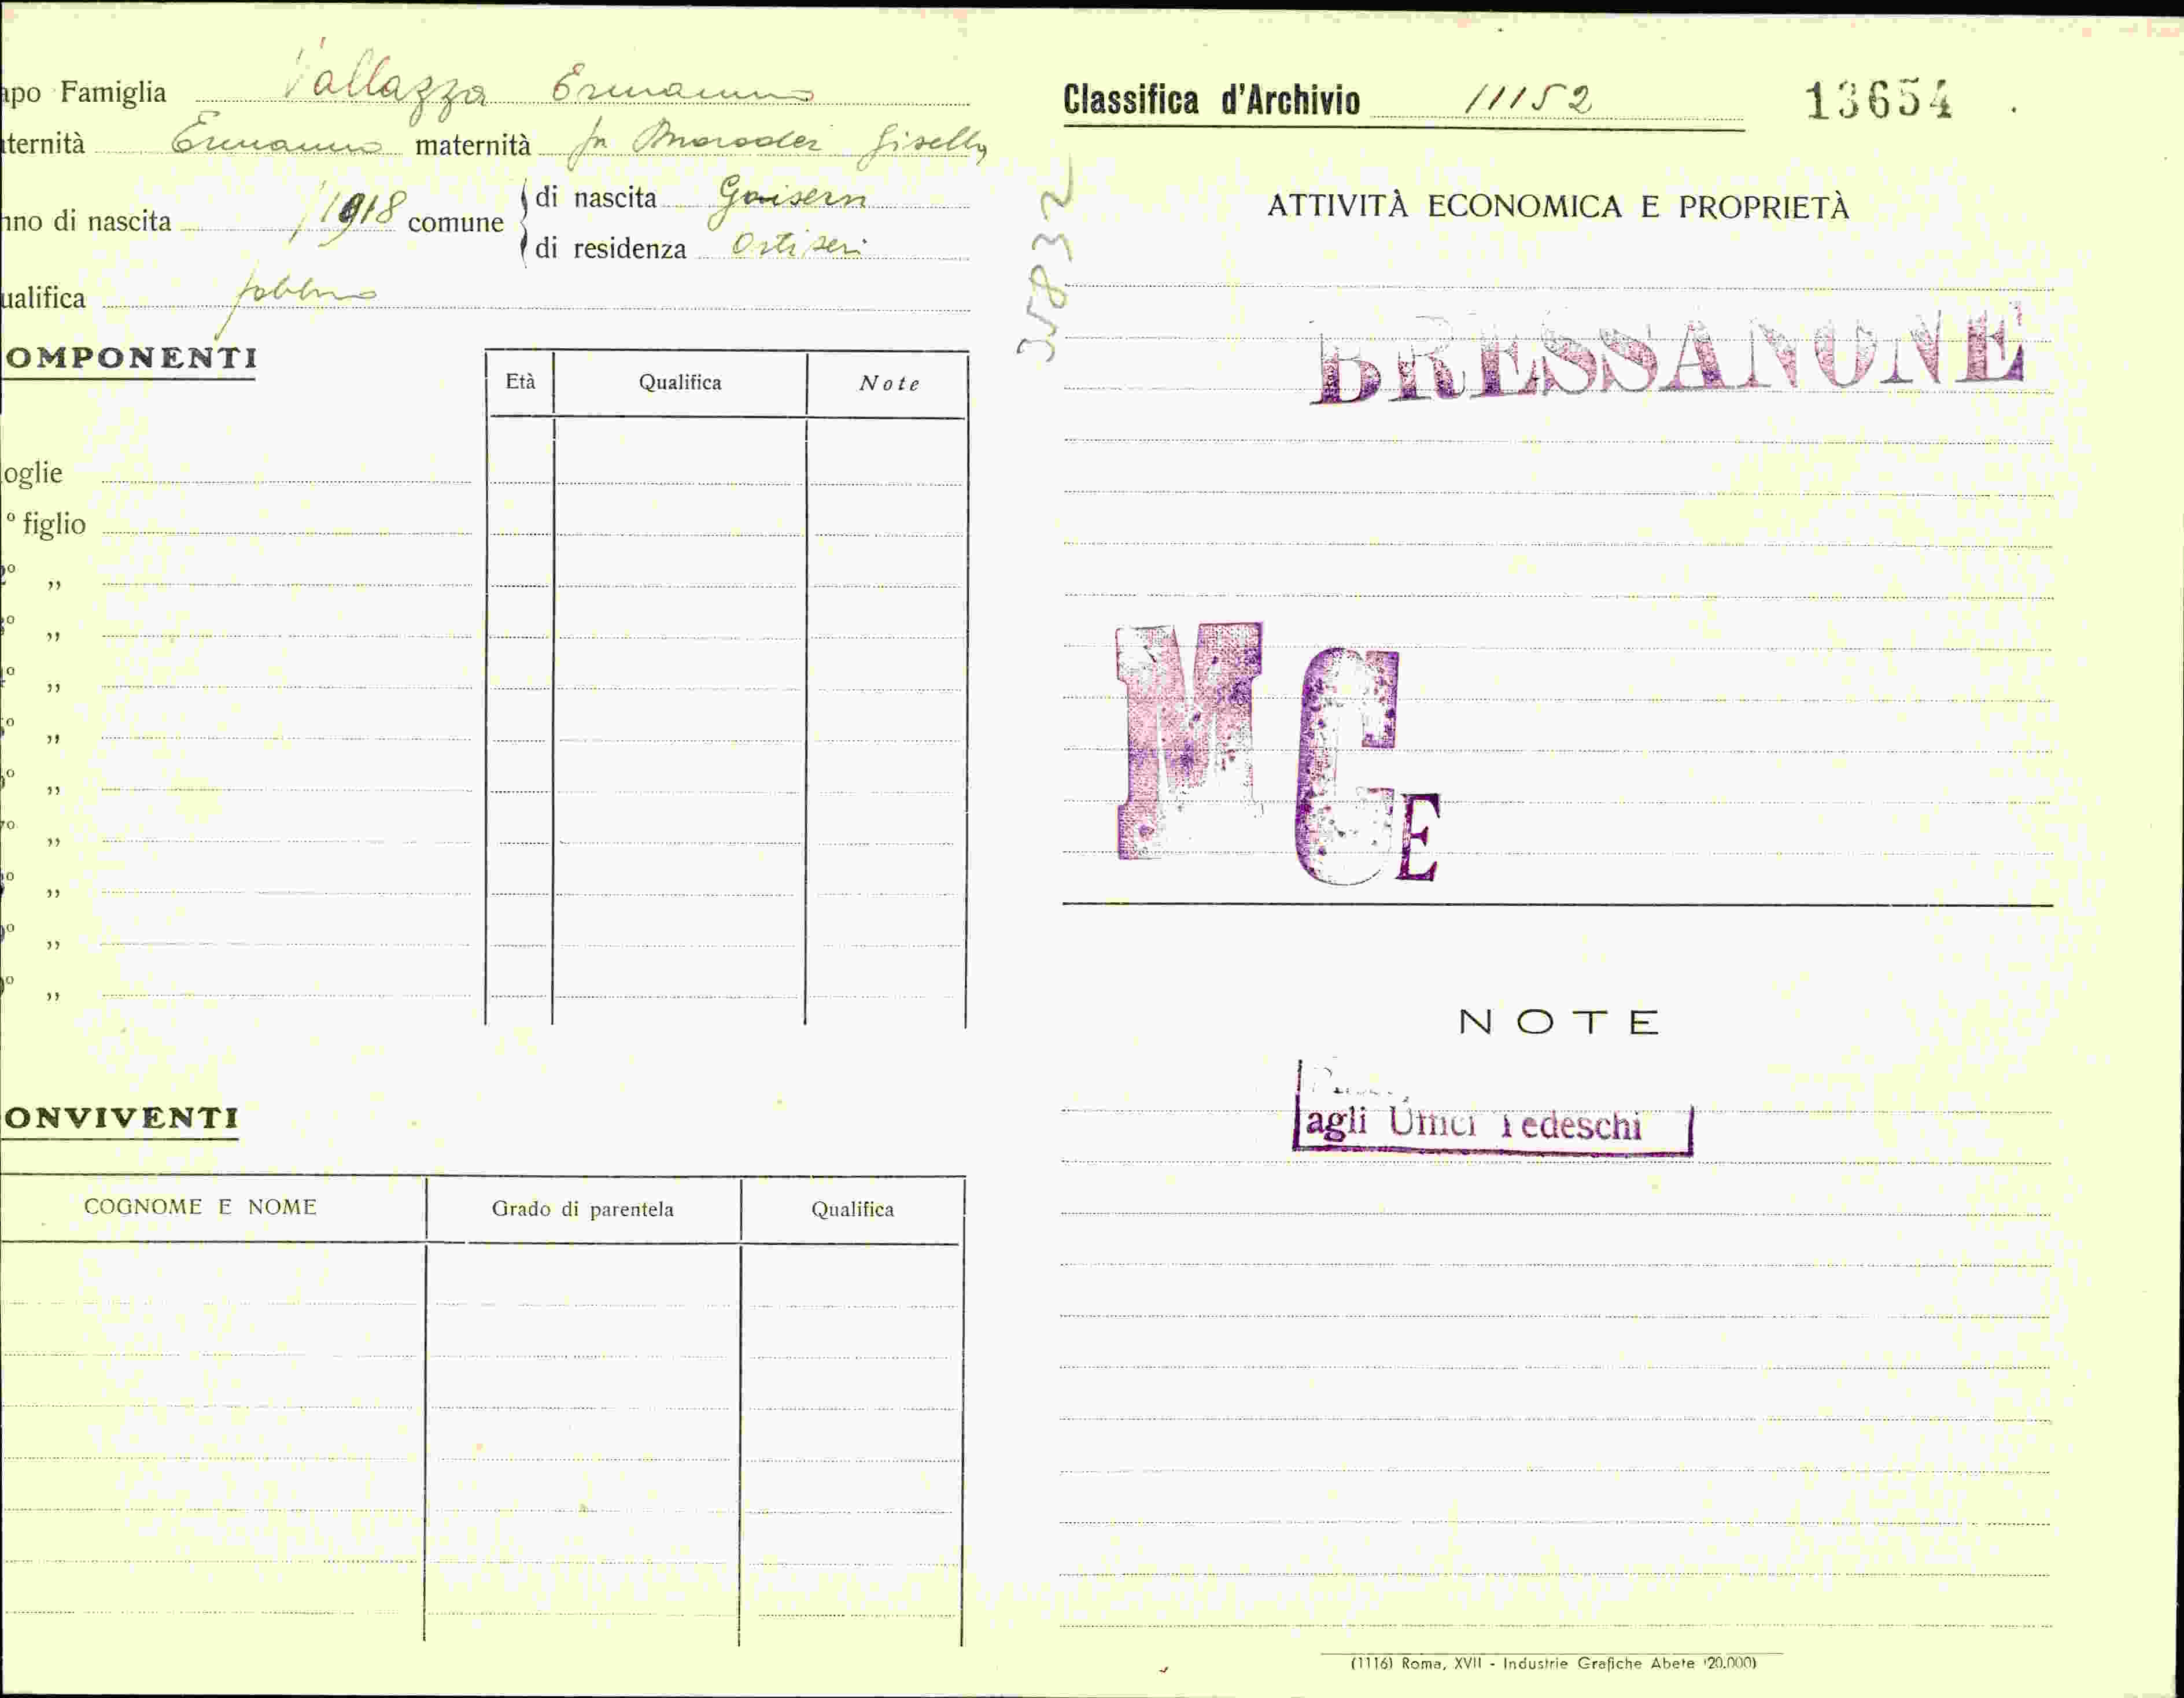 apo Famiglia Vallazza Ermanno
aternità Ermanno maternità fu Moroder Gisella
nno di nascita 1918 comune
di nascita Goisern
di residenza Ortisei
ualifica fabbro
OMPONENTI
Età Qualifica Note
oglie
º figlio
2º „
3º „
4º „
5º „
6º „
7º „
8º „
9º „
0º „
ONVIVENTI
COGNOME E NOME Grado di parentela Qualifica
Classifica d'Archivio 11152 13654
35832
ATTIVITÀ ECONOMICA E PROPRIETÀ
BRESSANONE
M C E
NOTE
agli Uffici Tedeschi
(1116) Roma, XVII - Industrie Grafiche Abete (20.000)